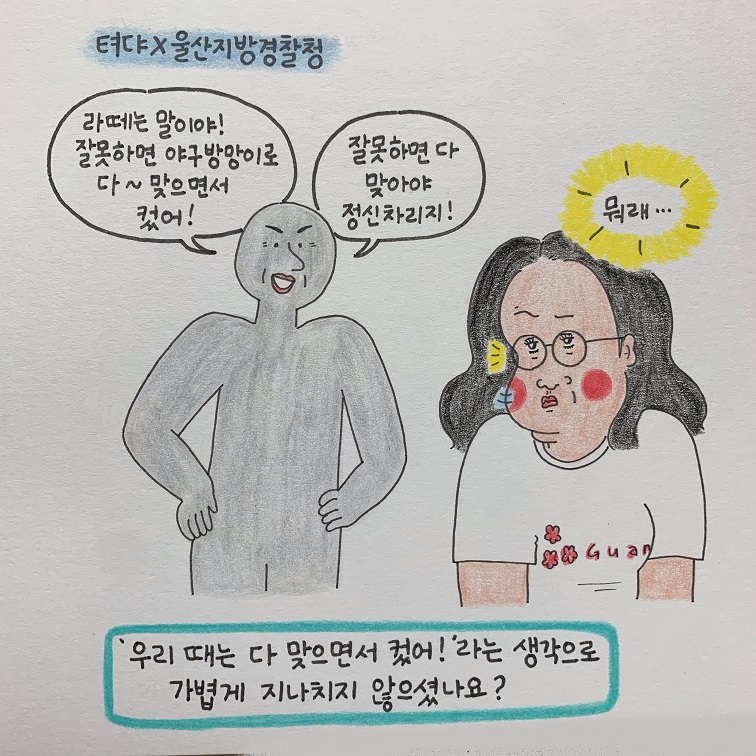 텨댜X울산지방경찰청
라떼는 말이야!
잘못하면 야구방망이로
다~ 맞으면서
컸어!
잘못하면 다
맞아야
정신차리지!
뭐래...
Guar
'우리 때는 다 맞으면서 컸어!'라는 생각으로
가볍게 지나치지 않으셨나요?